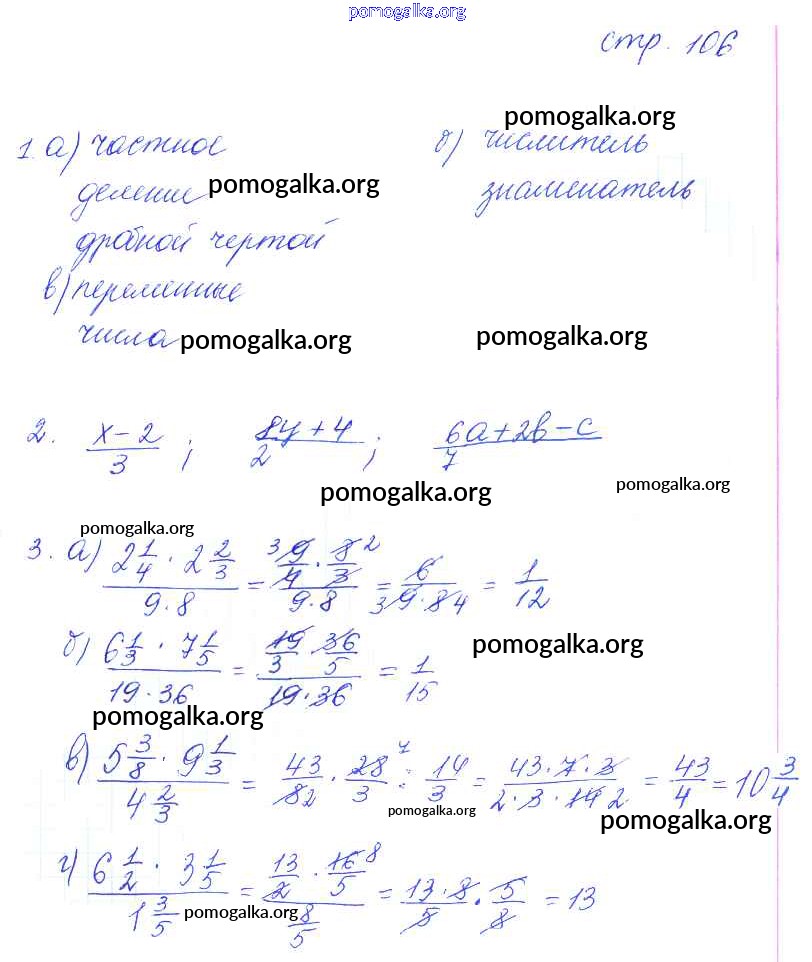 pomogalka.org
стр. 106
pomogalka.org
1. а) частное б) числитель
деление pomogalka.org знаменатель
дробной чертой
в) переменные
числа pomogalka.org pomogalka.org
2. (x-2)/3 ; (8y+4)/2 ; (6a+2b-c)/7
pomogalka.org pomogalka.org
pomogalka.org
3. а) (2 1/4 · 2 2/3)/(9·8) = (3 9/4 · 8/3 2)/(9·8) = 6/(3 9·8 4) = 1/12
б) (6 1/3 · 7 1/5)/(19·36) = (19/3 · 36/5)/(19·36) = 1/15 pomogalka.org
pomogalka.org
в) (5 3/8 · 9 1/3)/(4 2/3) = 43/(8 2) · 28 7/3 : 14/3 = (43·7·3)/(2·3·14 2) = 43/4 = 10 3/4
pomogalka.org pomogalka.org
г) (6 1/2 · 3 1/5)/(1 3/5) = (13/2 · 16 8/5)/(8/5) = (13·8)/5 · 5/8 = 13
pomogalka.org